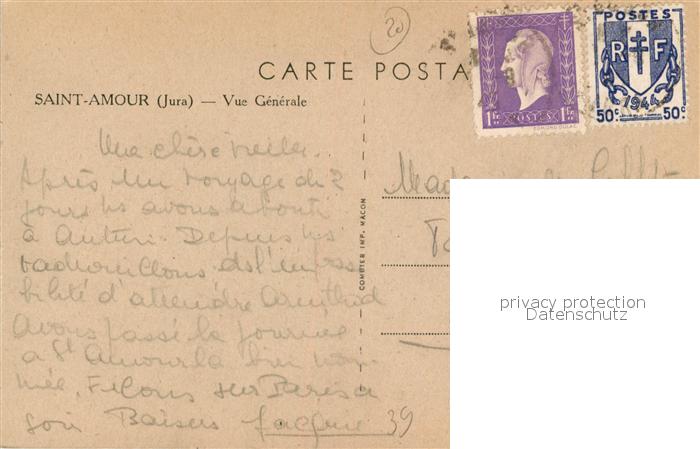 20
CARTE POSTA
SAINT-AMOUR (Jura) — Vue Générale
POSTES
R F
1944
50c 50c
1Fr POSTES 1Fr
EDMOND DULAC
Ma chère vieille.
Après un voyage de 2
jours ns avons abouti
à Autun. Depuis ns
ds l'impossi
bilité d'atteindre
Avons passé la journée
à St Amour la bien nom
mée. Filons sur Paris ce
soir Baisers Jacques 39
Mad
COMBIER IMP. MACON
privacy protection
Datenschutz